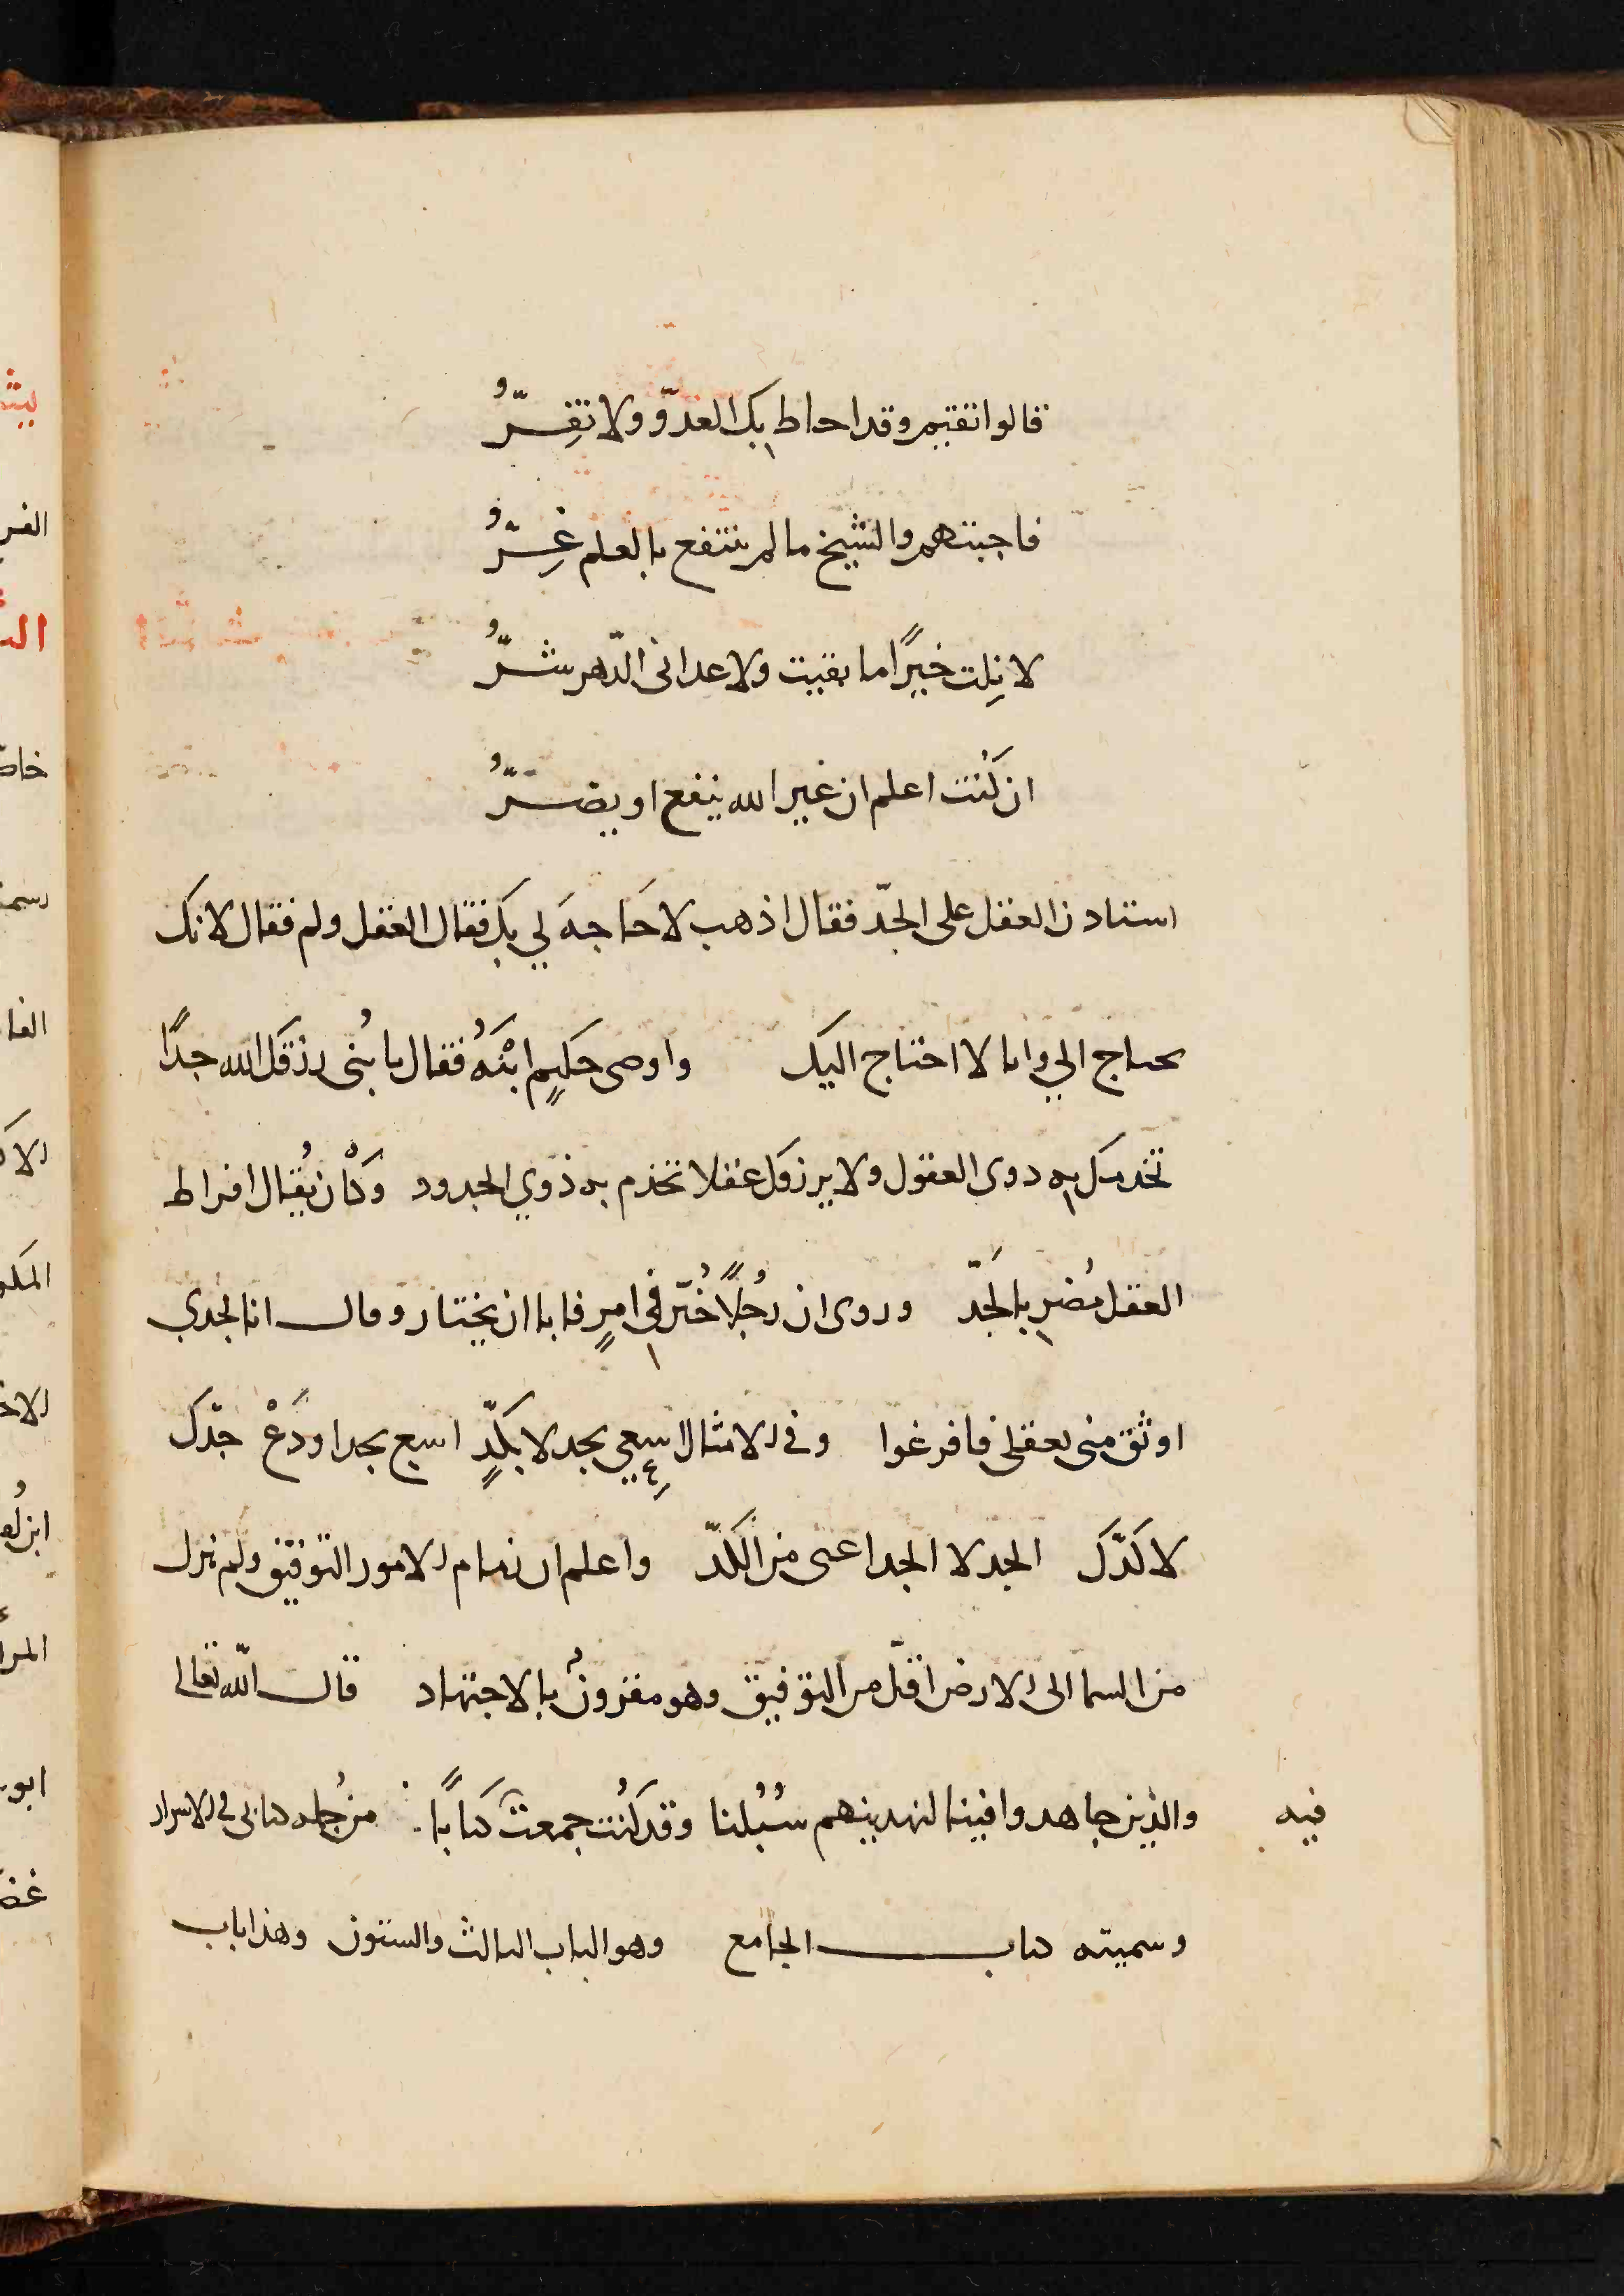 قالوا تقيم وقد احاط بك العدوّ ولا تفِرّ
فاجبتهم والشيخ ما لم ينتفع بالعلم غِرّ
لا نِلت خيرًا ما بقيت ولا عداني الدّهر شرّ
ان كنت اعلم ان غير الله ينفع او يضرّ
استاذن العقل على الجدّ فقال اذهب لا حاجه لي بك فقال العقل ولم فقال لانك
تحتاج الي وانا لا احتاج اليك واوصى حكيمٍ ابْنَهُ فقال يا بُنى رزقك الله جدًا
تخدمك به ذوى العقول ولا يرزقك عقلا تخذم به ذوي الجدود وكان يُقال افراط
العقل مُضر بالجَدّ وروى ان رجُلًا خُيّر في امرٍ فابا ان يختار وقال انا بجدي
اوثق منى بعقلى فافرغوا وفي الامثال اسعي بجد لا بكدٍّ اسع بجد او دَعْ جدّك
لا كدّك الجد لا الجد اعنى من الكدّ واعلم ان زمام الامور التوفيق ولم ينزل
من السما الى الارض اقل من التوفيق وهو مقرونٌ بالاجتهاد قال الله تعالى
والذين جاهدوا فينا لنهدينهم سُبُلنا وقد كُنت جمعت كتابًا من جُمله كتابى في الاسرار
فيه
وسميته كتاب الجامع وهو الباب الثالث والستون وهذا باب